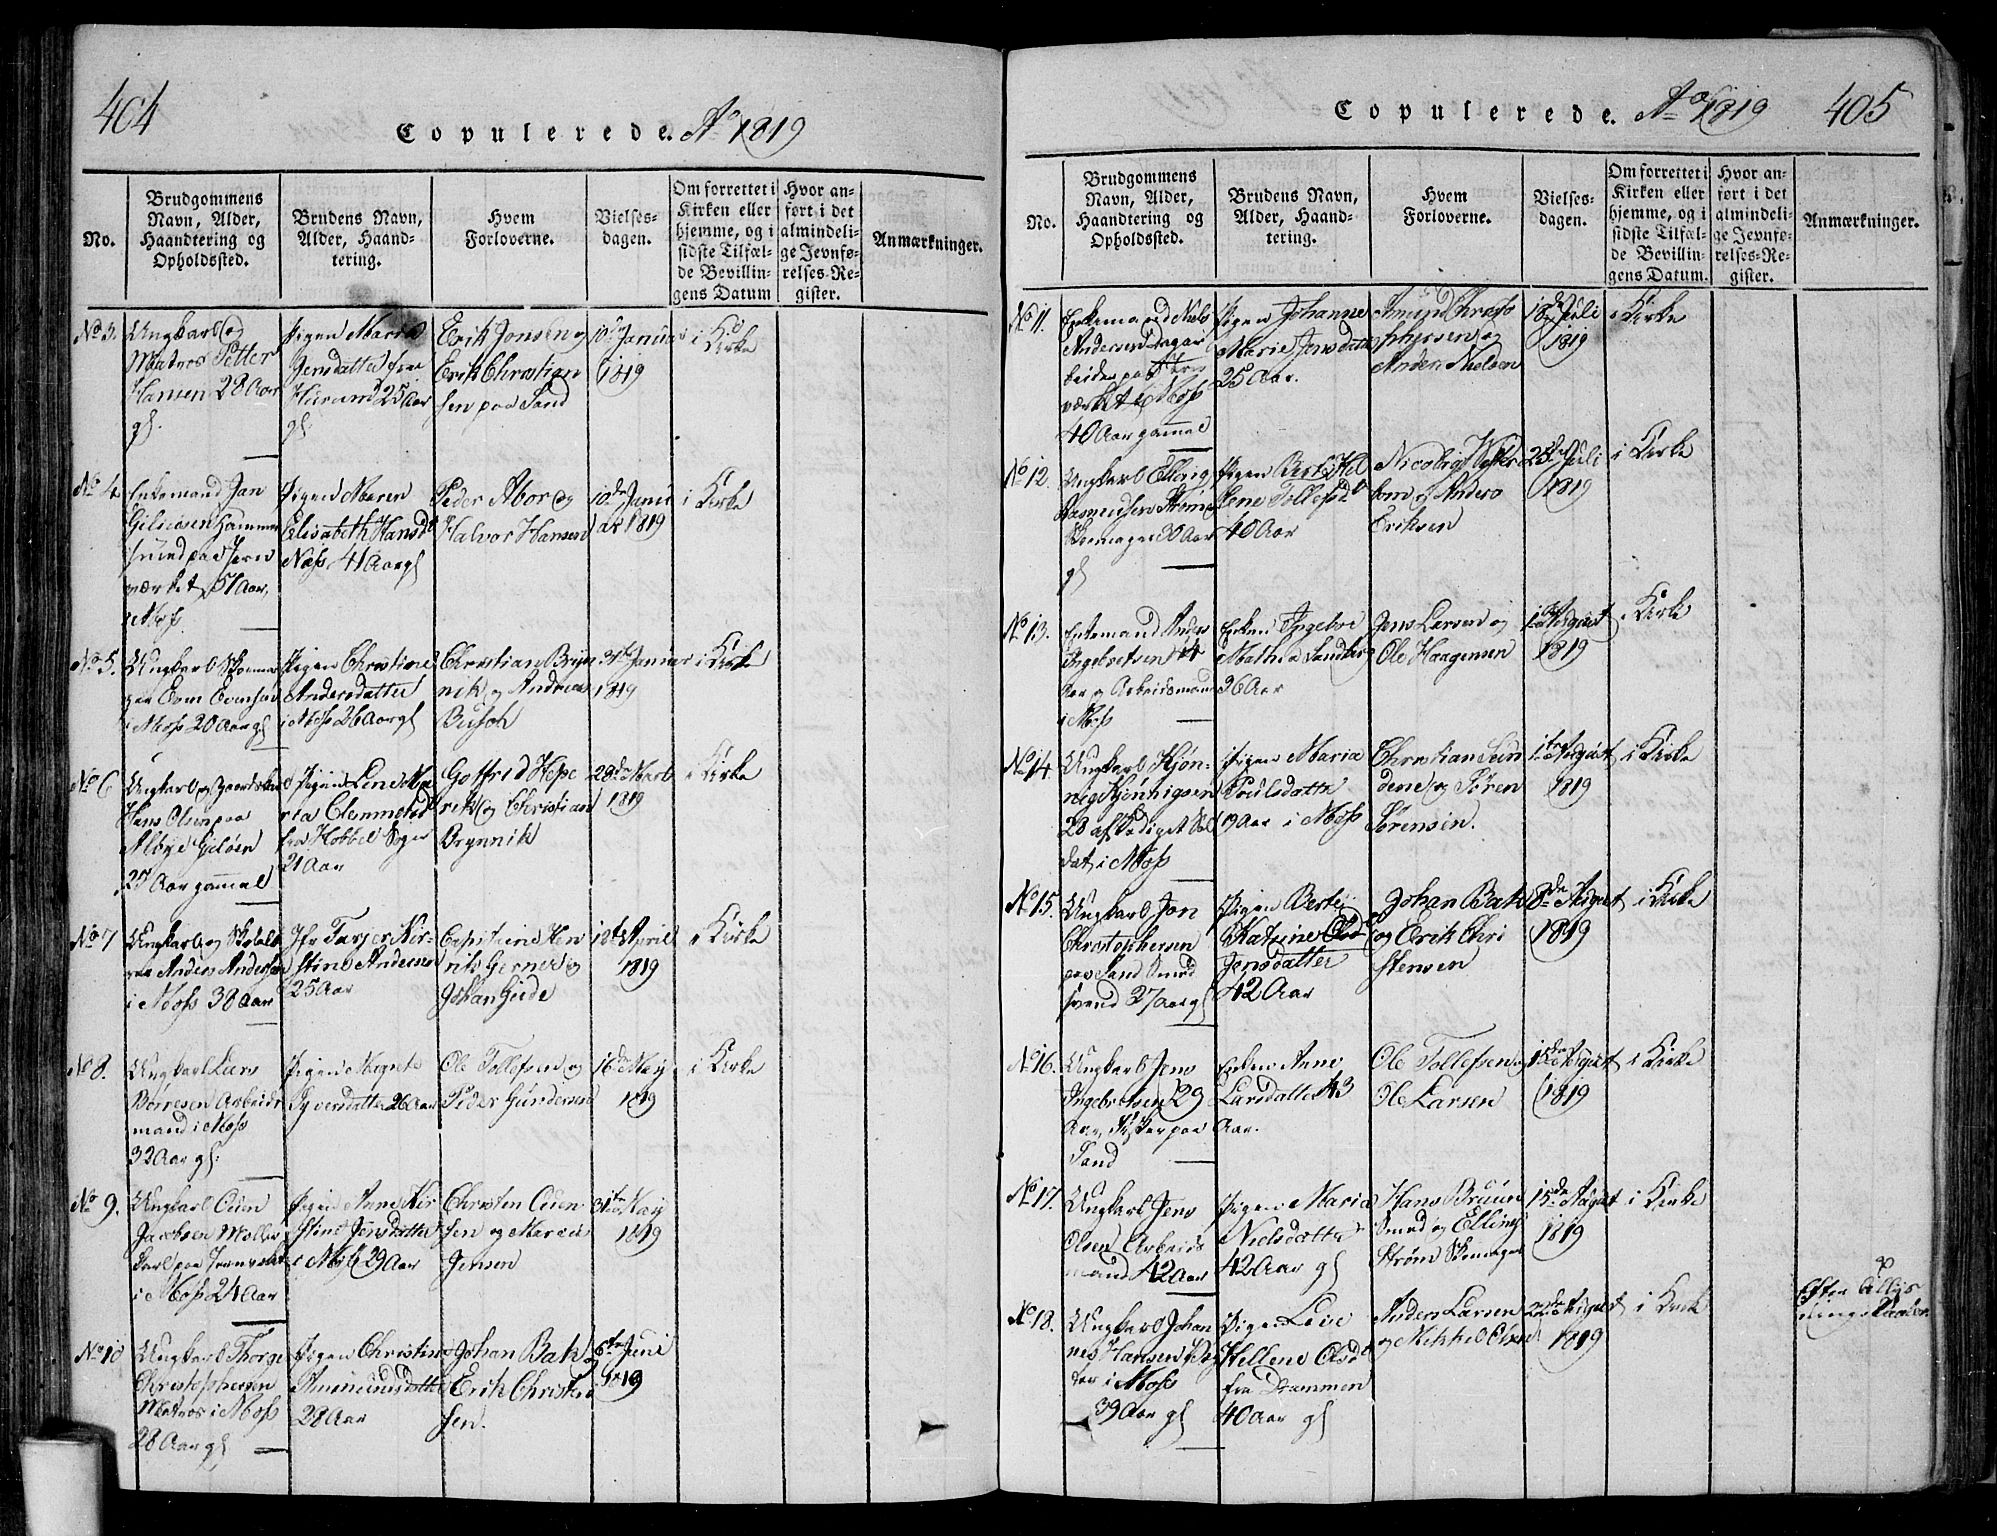 404
Copulerede. Ao 1819
No.
Brudgommens
Navn, Alder,
Haandtering og
Opholdssted.
Brudens Navn,
Alder, Haand-
tering.
Hvem
Forloverne.
Vielses-
dagen.
Om forrettet i
Kirken eller
hjemme, og i
sidste Tilfæl-
de Bevillin-
gens Datum
Hvor an-
ført i det
almindeli-
ge Jevnfø-
relses-Re-
gister.
Anmærkninger.
No 3.
Ungkarl og
Matros Petter
Hansen 28 Aar
gl.
Pigen Maria
Jensdatter fra
25 Aar
gl.
Erik Jonsen og
Erik Christian
sen paa Sand
10de Januar
1819
i Kirke
No 4
Enkemand Jan
paa Jern
værket, 51 Aar,
i Moss.
Pigen Maren
Elisabeth Hansd.
Næss, 41 Aar gl
Peder Abor og
Halvor Hansen
10de Janu
ar 1819
i Kirke
No 5.
Ungkarl Skoma
ger Even Evensen
i Moss 20 Aar gl
Pigen Christine
Andersdatter
i Moss 26 Aar gl
Christian Bryn
nik og Andreas
Busch
31te Januar
1819
i Kirke
No 6
Ungkarl og
Hans Olsen paa
Albye Geløen
27 Aar gammel
Pigen Line Ma
ria Clemmetsd.
fra Hobbel Sogn
21 Aar
Gotfrid Hepe
rik og Christian
Brynnik
28de Marti
1819
i Kirke
No 7
Ungkarl og
Anders Andersen
i Moss 38 Aar
Jfr Kir-
stine Andersen
25 Aar
Capitaine Hen
rik Gerner og
Johan Gude
18de April
1819
i Kirke
No 8.
Ungkarl Lars
Børresen Arbeids
mand i Moss
32 Aar gl.
Pigen Magrete
Syversdatter 26 Aar
Ole Tollefsen og
Peder Gundersen
16de May
1819
i Kirke
No 9.
Ungkarl Ouen
Jacobsen Møller
karl paa Jernværket
i Moss 24 Aar
Pigen Anne Kir
stine Jensdatter
i Moss 29 Aar
Christen Ouen
sen og
Jensen
31te May
1819
No 10
Ungkarl Thorge
Christophersen
Matros i Moss
28 Aar gl
Pigen Christine
Amundsdatter
28 Aar
Johan Bak og
Erik Christen
sen.
6te Juni
1819
Copulerede. Ao 1819
405
No.
Brudgommens
Navn, Alder,
Haandtering og
Opholdssted.
Brudens Navn,
Alder, Haand-
tering.
Hvem
Forloverne.
Vielses-
dagen.
Om forrettet i
Kirken eller
hjemme, og i
sidste Tilfæl-
de Bevillin-
gens Datum.
Hvor an-
ført i det
almindeli-
ge Jevnfø-
relses-Re-
gister.
Anmærkninger.
No 11.
Enkemand Niels
Andersen Dagar
beider paa Jern
værket i Moss
40 Aar gammel
Pigen Johanne
Marie Jensdatter
25 Aar.
Amund Christo
phersen og
Anders Nielsen
18de Juli
1819
i Kirke
No 12.
Ungkarl Elling
Rasmussen Strøm
Skomager 30 Aar
gl
Pigen Berte Hel
lene Tollefsd.
40 Aar
Nicolay
og Anders
Eriksen
25de Juli
1819
i Kirke
No 13.
Enkemand Anders
Ingebretsen 44
Aar og Arbeidsmand
i Moss
Enken Ingebor
Mathea Sandberg
36 Aar
Jens Larsen og
Ole Haagensen
1ste August
1819
i Kirke
No 14
Ungkarl Kjøn-
nig Kjønnigsen
28 Sol
dat i Moss
Pigen Maria
Poulsdatter
19 Aar i Moss
Christian
og Søren
Sørensen.
1ste August
1819
i Kirke
No 15.
Ungkarl Jon
Christophersen
paa Sand Smed
svend 27 Aar gl
Pigen Berte
Katrine Olsd
Jensdatter
42 Aar
Johan Bak
og Erik Chri
stensen
8de August
1819
i Kirke
No 16.
Ungkarl Jens
Ingebretsen 29
Aar, Fisker paa
Sand
Enken Anne
Larsdatter 43
Aar.
Ole Tollefsen og
Ole Larsen
15de August
1819
i Kirke
No 17.
Ungkarl Jens
Olsen Arbeids
mand 42 Aar
Pigen Maria
Nielsdatter
42 Aar gl
Hans Bruun
Smed og Elling
Strøm Skomager
15de August
1819
i Kirke
No 18.
Ungkarl Johan
nes Hansen
i Moss
39 Aar gl
Pigen
Hellene Olsd
fra Drammen
40 Aar gl
Anders Larsen
og Mikkel Olsen
22de August
1819
i Kirke
Efter